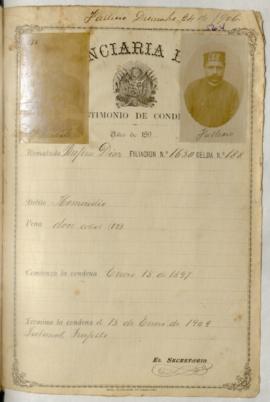 Falleció Diciembre 24 de 1906
NCIARIA
TIMONIO DE CONDE
Año de 190
Rematado Rufino Díaz FILIACION N.º 1630 CELDA N.º 188
Falleció
Delito Homicidio
Pena doce años (12)
Comienza la condena Enero 13 de 1897
Termina la condena el 13 de Enero de 1909
Tribunal Trujillo
EL SECRETARIO